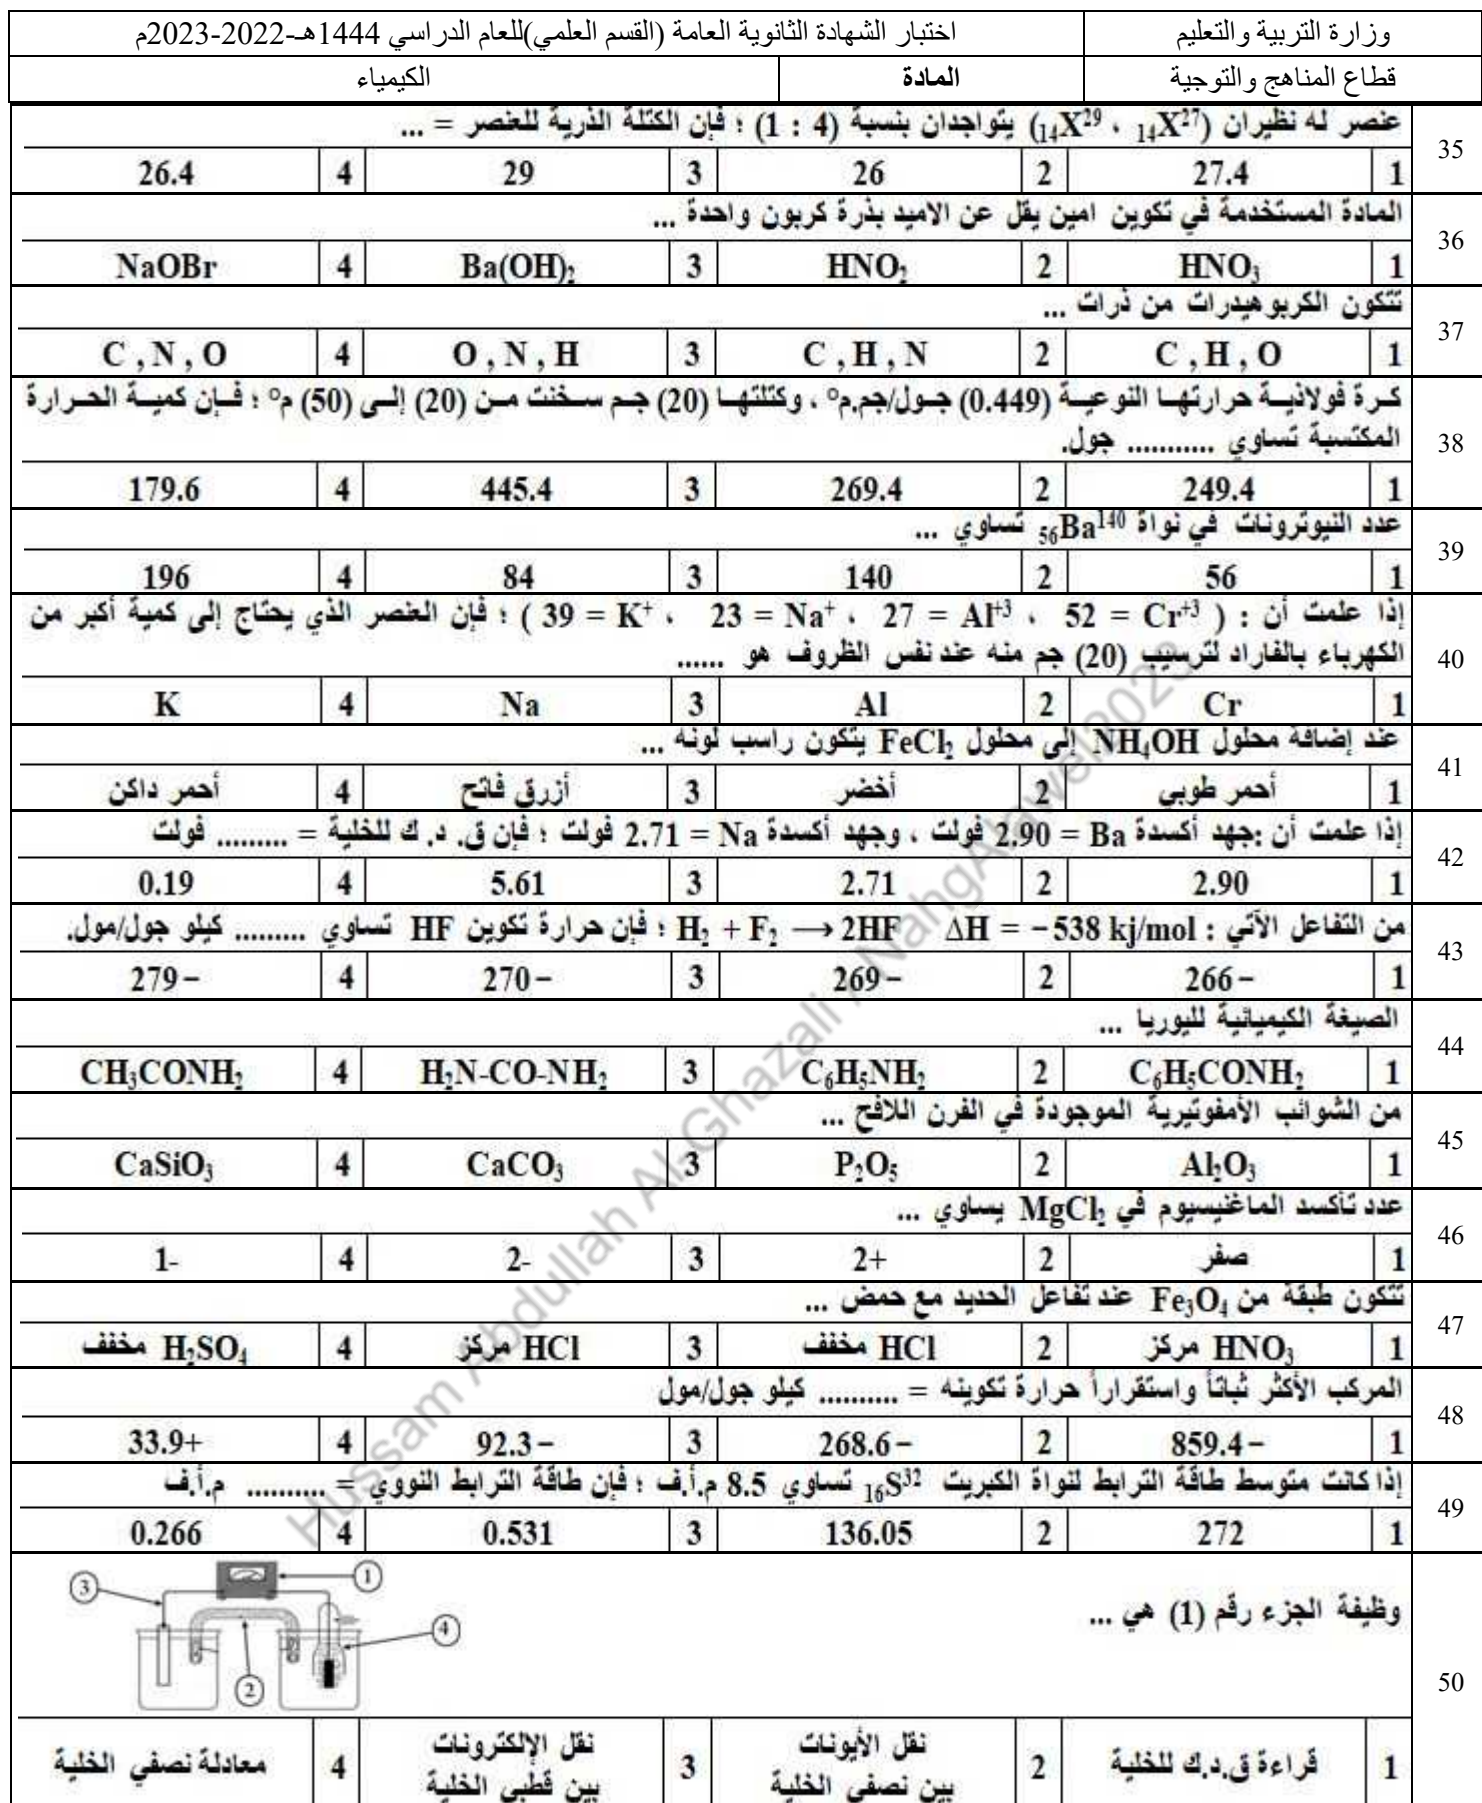 وزارة التربية والتعليم اختبار الشهادة الثانوية العامة (القسم العلمي)للعام الدراسي 1444هـ-2022-2023م
قطاع المناهج والتوجية المادة الكيمياء
35 عنصر له نظيران (₁₄X²⁷ ، ₁₄X²⁹) يتواجدان بنسبة (4 : 1) ؛ فإن الكتلة الذرية للعنصر = ...
1 27.4 2 26 3 29 4 26.4
36 المادة المستخدمة في تكوين امين يقل عن الاميد بذرة كربون واحدة ...
1 HNO₃ 2 HNO₂ 3 Ba(OH)₂ 4 NaOBr
37 تتكون الكربوهيدرات من ذرات ...
1 C , H , O 2 C , H , N 3 O , N , H 4 C , N , O
38 كرة فولاذية حرارتها النوعية (0.449) جول/جم.م° ، وكتلتها (20) جم سخنت من (20) إلى (50) م° ؛ فإن كمية الحرارة
المكتسبة تساوي ........... جول.
1 249.4 2 269.4 3 445.4 4 179.6
39 عدد النيوترونات في نواة ₅₆Ba¹⁴⁰ تساوي ...
1 56 2 140 3 84 4 196
إذا علمت أن : ( Cr⁺³ = 52 ، Al⁺³ = 27 ، Na⁺ = 23 ، K⁺ = 39 ) ؛ فإن العنصر الذي يحتاج إلى كمية أكبر من
40 الكهرباء بالفاراد لترسيب (20) جم منه عند نفس الظروف هو ......
1 Cr 2 Al 3 Na 4 K
41 عند إضافة محلول NH₄OH إلى محلول FeCl₂ يتكون راسب لونه ...
1 أحمر طوبي 2 أخضر 3 أزرق فاتح 4 أحمر داكن
42 إذا علمت أن :جهد أكسدة Ba = 2.90 فولت ، وجهد أكسدة Na = 2.71 فولت ؛ فإن ق. د. ك للخلية = ......... فولت
1 2.90 2 2.71 3 5.61 4 0.19
43 من التفاعل الآتي : H₂ + F₂ ⟶ 2HF ΔH = −538 kj/mol ؛ فإن حرارة تكوين HF تساوي ......... كيلو جول/مول.
1 266− 2 269− 3 270− 4 279−
44 الصيغة الكيميائية لليوريا ...
1 C₆H₅CONH₂ 2 C₆H₅NH₂ 3 H₂N-CO-NH₂ 4 CH₃CONH₂
45 من الشوائب الأمفوتيرية الموجودة في الفرن اللافح ...
1 Al₂O₃ 2 P₂O₅ 3 CaCO₃ 4 CaSiO₃
46 عدد تأكسد الماغنيسيوم في MgCl₂ يساوي ...
1 صفر 2 2+ 3 2- 4 1-
47 تتكون طبقة من Fe₃O₄ عند تفاعل الحديد مع حمض ...
1 HNO₃ مركز 2 HCl مخفف 3 HCl مركز 4 H₂SO₄ مخفف
48 المركب الأكثر ثباتاً واستقراراً حرارة تكوينه = .......... كيلو جول/مول
1 859.4− 2 268.6− 3 92.3− 4 33.9+
49 إذا كانت متوسط طاقة الترابط لنواة الكبريت ₁₆S³² تساوي 8.5 م.أ.ف ؛ فإن طاقة الترابط النووي = .......... م.أ.ف
1 272 2 136.05 3 0.531 4 0.266
50 وظيفة الجزء رقم (1) هي ...
1
3
4
2
1 قراءة ق.د.ك للخلية 2 نقل الأيونات بين نصفي الخلية 3 نقل الإلكترونات بين قطبي الخلية 4 معادلة نصفي الخلية
Hussam Abdullah Al-Ghazali / NahgAlawel2023